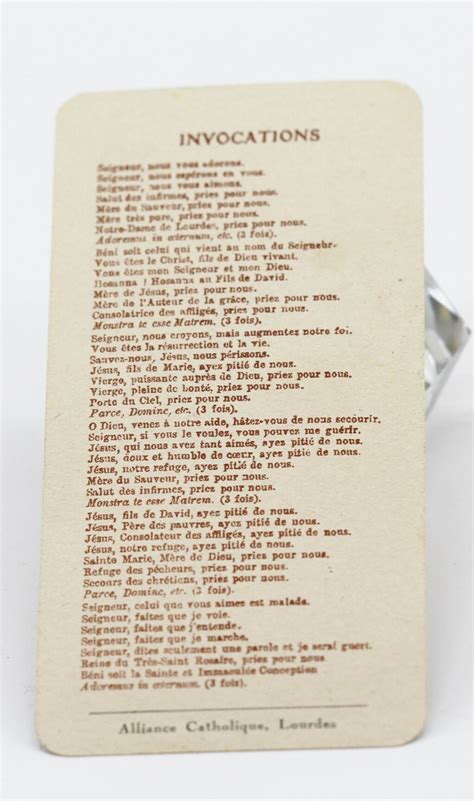 INVOCATIONS
Seigneur, nous vous adorons.
Seigneur, nous espérons en vous.
Seigneur, nous vous aimons.
Salut des infirmes, priez pour nous.
Mère du Sauveur, priez pour nous.
Mère très pure, priez pour nous.
Notre-Dame de Lourdes, priez pour nous.
Adoremus in æternum, etc. (3 fois).
Béni soit celui qui vient au nom du Seigneur.
Vous êtes le Christ, fils de Dieu vivant.
Vous êtes mon Seigneur et mon Dieu.
Hosanna ! Hosanna au Fils de David.
Mère de Jésus, priez pour nous.
Mère de l'Auteur de la grâce, priez pour nous.
Consolatrice des affligés, priez pour nous.
Monstra te esse Matrem. (3 fois).
Seigneur, nous croyons, mais augmentez notre foi.
Vous êtes la résurrection et la vie.
Sauvez-nous, Jésus, nous périssons.
Jésus, fils de Marie, ayez pitié de nous.
Vierge, puissante auprès de Dieu, priez pour nous.
Vierge, pleine de bonté, priez pour nous.
Porte du Ciel, priez pour nous.
Parce, Domine, etc. (3 fois).
O Dieu, venez à notre aide, hâtez-vous de nous secourir.
Seigneur, si vous le voulez, vous pouvez me guérir.
Jésus, qui nous avez tant aimés, ayez pitié de nous.
Jésus, doux et humble de cœur, ayez pitié de nous.
Jésus, notre refuge, ayez pitié de nous.
Mère du Sauveur, priez pour nous.
Salut des infirmes, priez pour nous.
Monstra te esse Matrem. (3 fois).
Jésus, fils de David, ayez pitié de nous.
Jésus, Père des pauvres, ayez pitié de nous.
Jésus, Consolateur des affligés, ayez pitié de nous.
Jésus, notre refuge, ayez pitié de nous.
Sainte Marie, Mère de Dieu, priez pour nous.
Refuge des pécheurs, priez pour nous.
Secours des chrétiens, priez pour nous.
Parce, Domine, etc. (3 fois).
Seigneur, celui que vous aimes est malade.
Seigneur, faites que je voie.
Seigneur, faites que j'entende.
Seigneur, faites que je marche.
Seigneur, dites seulement une parole et je serai guéri.
Reine du Très-Saint Rosaire, priez pour nous
Béni soit la Sainte et Immaculée Conception
Adoremus in æternum. (3 fois).
Alliance Catholique, Lourdes